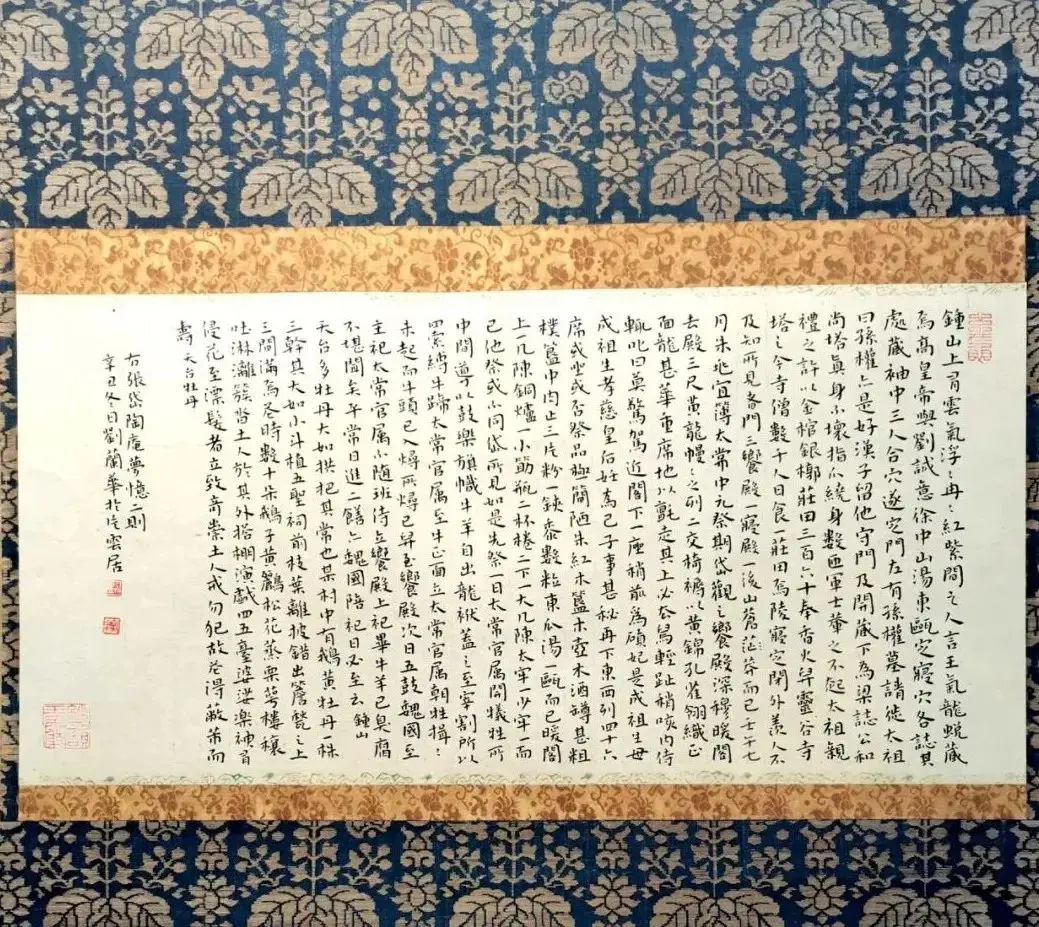 鍾山上有雲氣浮〻冉〻紅紫間之人言王氣龍蛻藏
焉高皇帝與劉誠意徐中山湯東甌定寢穴各誌其
處藏袖中三人合穴遂定門左有孫權墓請徙太祖
曰孫權亦是好漢子留他守門及開藏下為梁誌公和
尚塔真身不壞指爪繞身數匝軍士輦之不起太祖親
禮之許以金棺銀槨莊田三百六十奉香火舁靈谷寺
塔之今寺僧數千人日食一莊田焉陵寢定閉外羨人不
及知所見者門三饗殿一寢殿一後山蒼茫莽而已壬午七
月朱兆宣簿太常中元祭期岱觀之饗殿深穆暖閣
去殿三尺黃龍幔幔之列二交椅褥以黃錦孔雀翎織正
面龍甚華重席地以氈走其上必去舄輕趾稍咳內侍
輒叱曰莫驚駕近閣下一座稍前為碽妃是成祖生母
成祖生孝慈皇后妊為己子事甚秘再下東西列四十六
席或坐或否祭品極簡陋朱紅木簋木壺木酒罇甚粗
樸簋中肉止三片粉一鋏黍數粒東瓜湯一甌而已暖閣
上一几陳銅爐一小筯瓶二杯棬二下一大几陳太牢一少牢一而
已他祭或不同岱所見如是先祭一日太常官屬開犧牲所
中門導以鼓樂旗幟牛羊自出龍袱蓋之至宰割所以
四索縛牛蹄太常官屬至牛正面立太常官屬朝牲揖〻
未起而牛頭已入燖所燖已舁至饗殿次日五鼓魏國至
主祀太常官屬不隨班侍立饗殿上祀畢牛羊已臭腐
不堪聞矣平常日進二膳亦魏國陪祀日必至云 鍾山
天台多牡丹大如拱把其常也某村中有鵝黃牡丹一株
三幹其大如小斗植五聖祠前枝葉離披錯出簷甃之上
三間滿焉花時數十朵鵝子黃鸝松花蒸栗萼樓穰
吐淋漓簇沓土人於其外搭棚演戲四五臺婆娑樂神有
侵花至漂髮者立致奇祟土人戒勿犯故花得蔽芾而
壽 天台牡丹
右張岱陶庵夢憶二則
辛丑冬日劉蘭華於片雲居